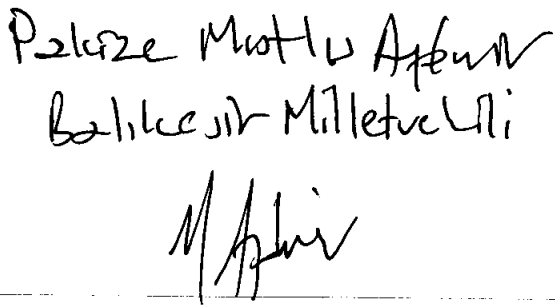 Pakize Mutlu Aydemir
Balıkesir Milletvekili